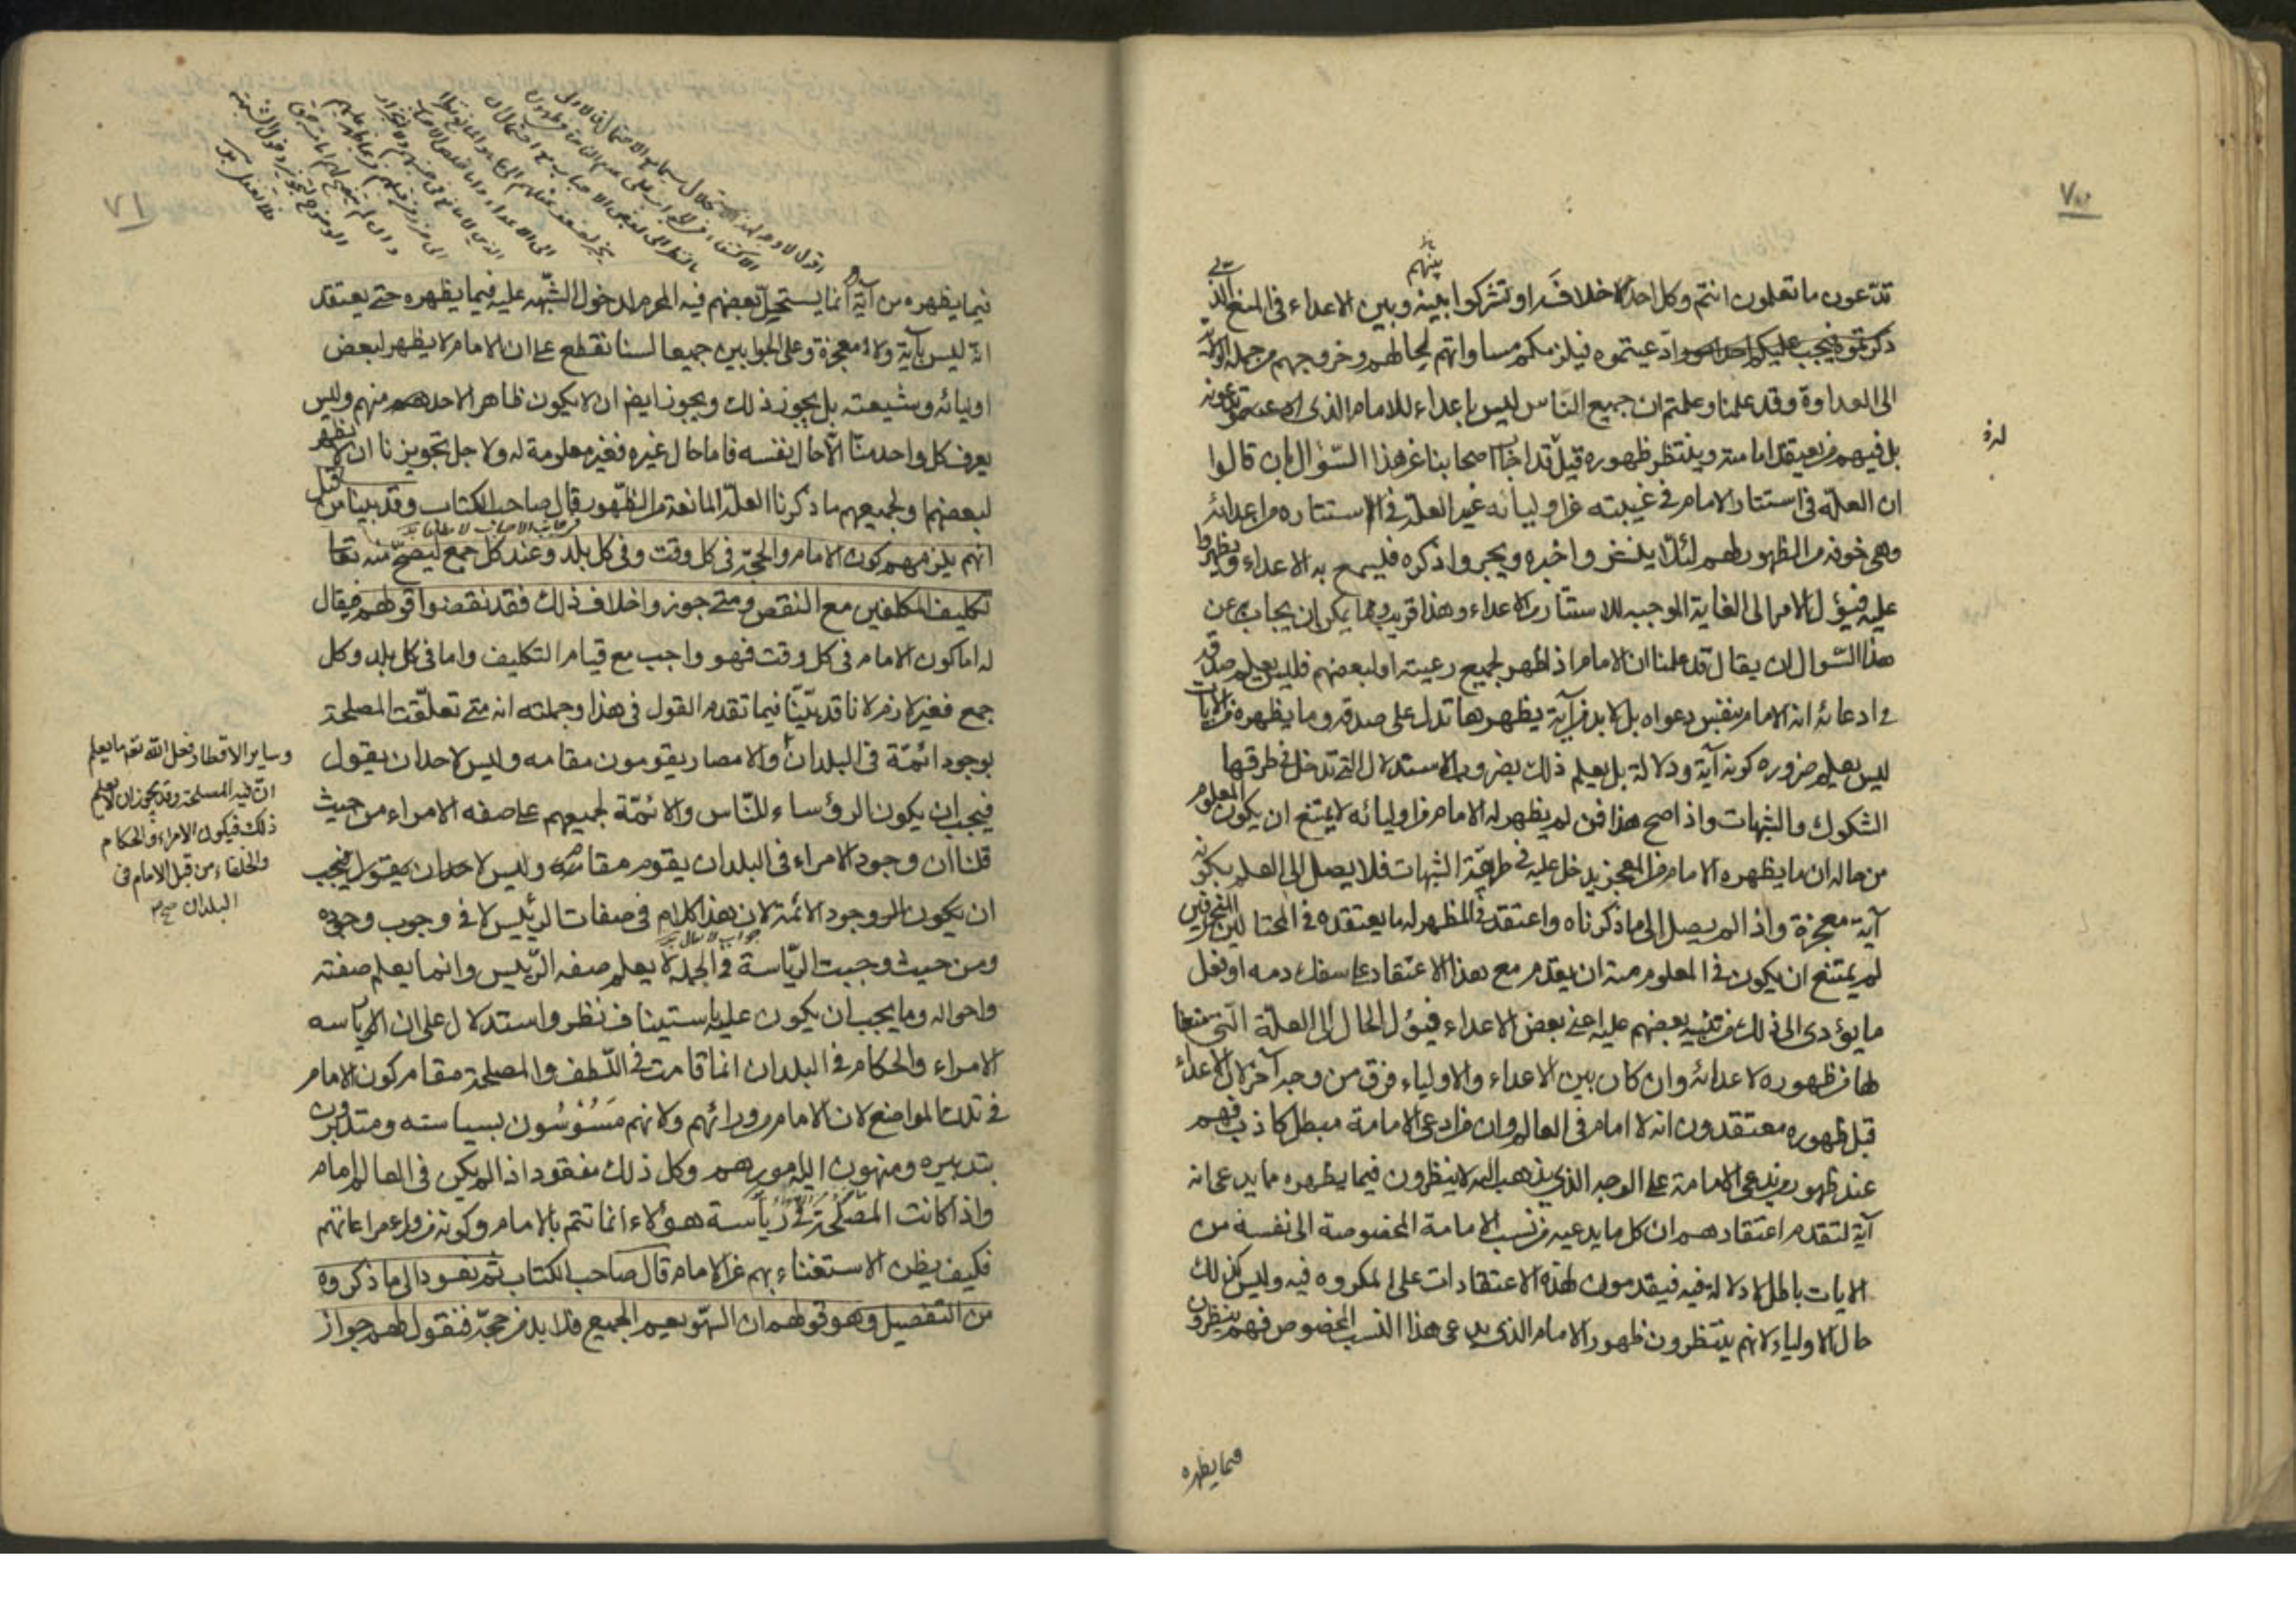 تدّعون ما تعلمون انتم وكل احد خلافه او تشركوا بينه وبين الاعداء في المنع الذي
بينهم
ذكرتموه فيجب عليكم وادّعيتموه فيلزمكم مساواتهم لحالهم وخروجهم من جملة الولاية
الى العداوة وقد علمنا وعلمتم ان جميع النّاس ليس باعداء للامام الذي
بل فيهم من يعتقد امامته وينتظر ظهوره قيل قد اجاب اصحابنا عن هذا السّؤال بان قالوا
ان العلّة في استتار الامام في غيبته عن اوليائه غير العلّة في الاستتاره من اعدائه
وهي خوفه من الظهور لهم لئلّا ينشروا خبره ويجروا ذكره فيسمع به الاعداء ويظهروا
عليه فيؤل الامر الى الغاية الموجبه للاستتار من الاعداء وهذا قريب ومما يمكن ان يجاب به عن
هذا السّوال ان يقال قد علمنا ان الامام اذا ظهر لجميع رعيته او لبعضهم فليس يعلم صدقه
في ادعائه انه الامام بنفس دعواه بل لا بد من آية يظهرها تدل على صدقه وما يظهره من الايات
ليس يعلم ضروره كونه آية ودلالة بل يعلم ذلك بضروب الاستدلال التي تدخل في طرقها
الشكوك والشبهات واذا صح هذا فمن لم يظهر له الامام من اوليائه لا يمتنع ان يكون المعلوم
من حاله ان ما يظهره الامام من المعجز يدخل عليه في طريقه الشبهات فلا يصل الى العلم بكونه
آية معجزة واذا لم يصل الى ما ذكرناه واعتقد في المظهر له ما يعتقده في المحتالين المخرقين
لم يمتنع ان يكون في المعلوم منه ان يقدم مع هذا الاعتقاد على سفك دمه او فعل
ما يؤدي الى ذلك من تنبيه بعضهم عليه اعني بعض الاعداء فيؤل الحال الى العلّة التي منعنا
لها من ظهوره لاعدائه وان كان بين الاعداء والاولياء فرق من وجه آخر لان الاعداء
قبل ظهوره معتقدون انه لا امام في العالم وان من ادعى الامامة مبطل كاذب فهم
عند ظهور من يدعي الامامة على الوجه الذي يذهب اليه لا ينظرون فيما يظهره مما يدعى انه
آية لتقدم اعتقادهم ان كل ما يدعيه من نسب الامامة المخصوصة الى نفسه من
الايات باطل لا دلالة فيه فيقدمون لهذه الاعتقادات على المكروه فيه وليس كذلك
حال الاولياء لانهم ينتظرون ظهور الامام الذي يدعى هذا النسب المخصوص فهم ينظرون
فيما يظهره
١٧
فيما يظهره من آية انما يستحيل بعضهم فيه المحرم لدخول الشّبهه عليه فيما يظهره حتى يعتقد
انه ليس بآية ولا معجزة وعلى الجوابين جميعا لسنا نقطع على ان الامام لا يظهر لبعض
اوليائه وشيعته بل يجوز ذلك ويجوز ايضا ان لا يكون ظاهرا لاحد منهم وليس
يعرف كل واحد منّا الّا حال نفسه فاما حال غيره فغير معلومة له ولاجل تجويزنا ان لا يظهر
لبعضهم او لجميعهم ما ذكرنا العلّة المانعة من الظّهور قال صاحب الكتاب وقد بينا من قبل
انهم يلزمهم كون الامام والحجّة في كل وقت وفي كل بلد وعند كل جمع ليصحّ منه تعالى
تكليف المكلفين مع النقص ومتى جوزوا خلاف ذلك فقد نقضوا قولهم فيقال
له اما كون الامام في كل وقت فهو واجب مع قيام التكليف واما في كل بلد وكل
جمع فغير لازم لانا قد بيّنّا فيما تقدم القول في هذا وجملته انه متى تعلّقت المصلحة
بوجود ائمّة في البلدان والامصار يقومون مقامه وليس لاحد ان يقول
وساير الاقطار فعل الله تعه ما يعلم
انّ فيه المصلحة وقد يجوز ان لا يعلم
ذلك فيكون الامراء والحكام
والخلفاء من قبل الامام في
البلدان صح
فيجب ان يكون الرؤساء للنّاس والائمّة لجميعهم على صفه الامراء من حيث
قلنا ان وجود الامراء في البلدان يقوم مقامه وليس لاحد ان يقول فيجب
ان يكون وجود الائمة لان هذا كلام في صفات الرئيس لا في وجوب وجوده
ومن حيث وجبت الريّاسة في الجملة لا يعلم صفه الرّئيس وانما يعلم صفته
واحواله وما يجب ان يكون عليه باستيناف نظر واستدلال على ان الرياسه
الامراء والحكام في البلدان انما قامت في اللّطف والمصلحة مقام كون الامام
في تلك المواضع لان الامام من ورائهم ولانهم مَسُوسُون بسياسته ومتدبرون
بتدبيره ومنهون اليه امورهم وكل ذلك مفقود اذا لم يكن في العالم امام
واذا كانت المصلحة في رياسة هؤلاء انما تتم بالامام وكونه من وراء مراعاتهم
فكيف يظن الاستغناء بهم عن الامام قال صاحب الكتاب ثم نعود الى ما ذكروه
من التفصيل وهو قولهم ان السّهو يعم الجميع فلا بد من حجّة فنقول لهم جواز